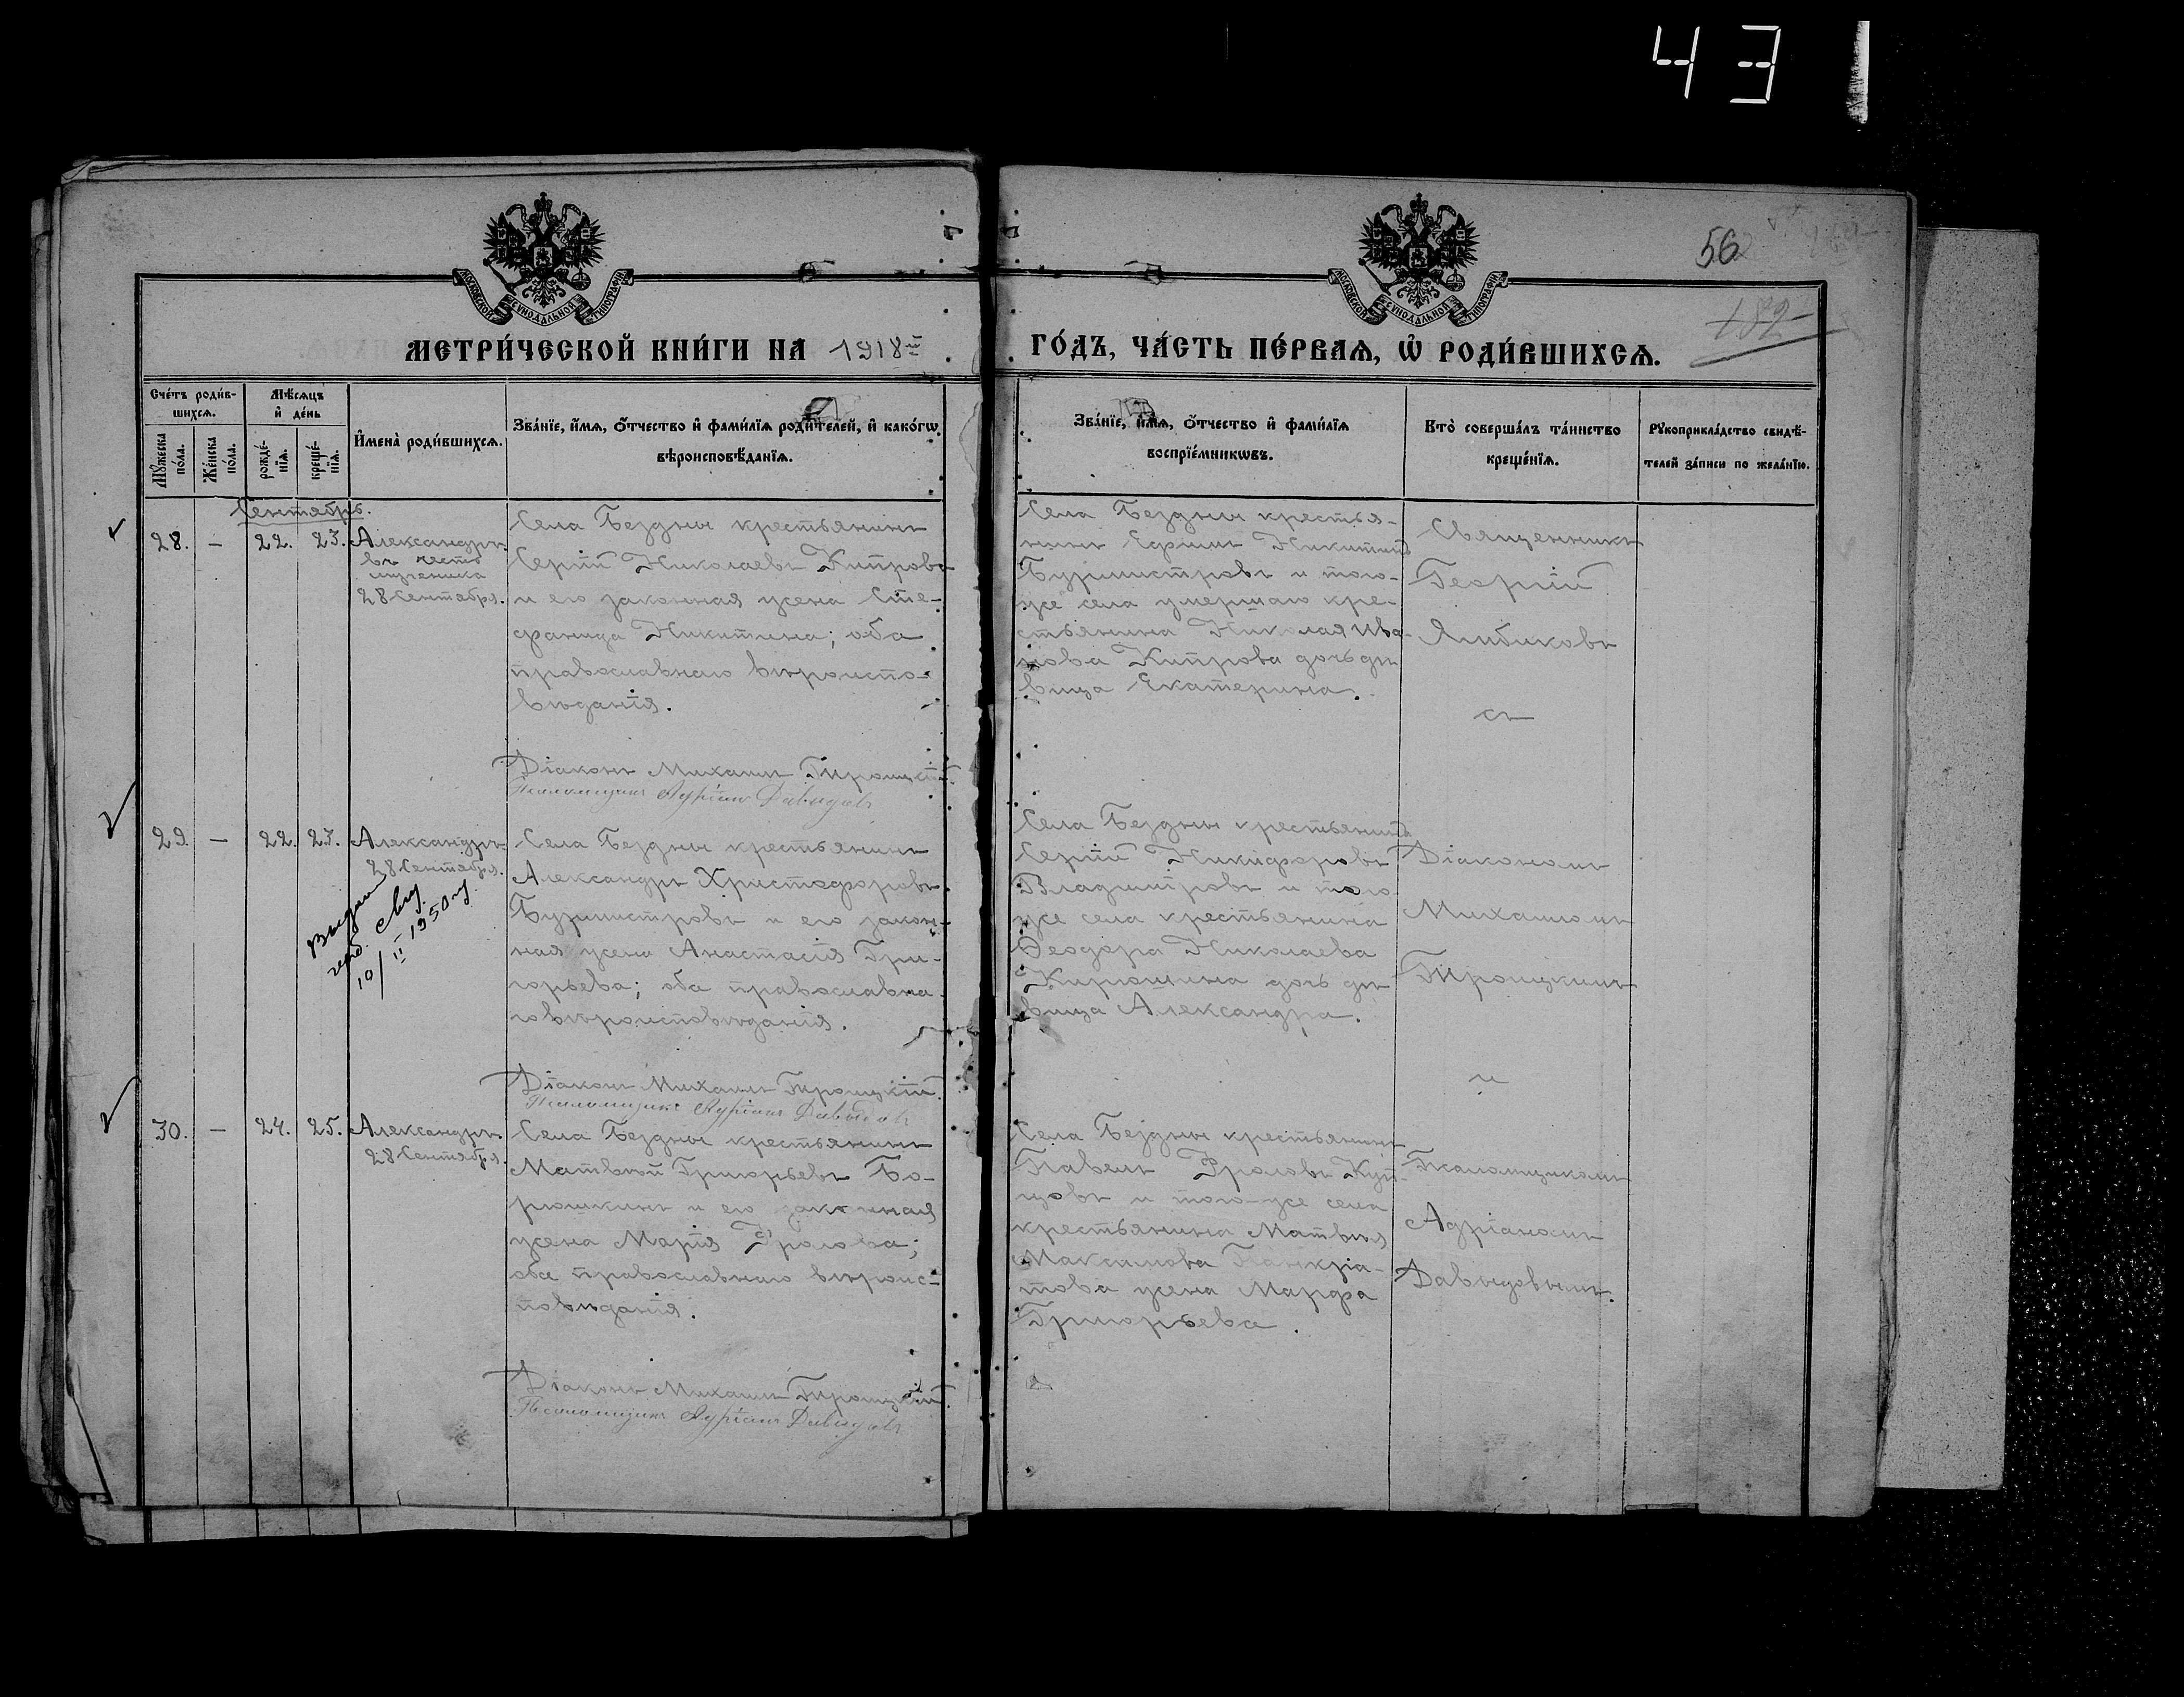 43
56
182
МОСКОВСКОЙ СУНОДАЛЬНОЙ ТИПОГРАФІИ
МОСКОВСКОЙ СУНОДАЛЬНОЙ ТИПОГРАФІИ
МЕТРИ́ЧЕСКОЙ КНИ́ГИ НА 1918й
ГО́ДЪ, ЧА́СТЬ ПЕ́РВАѦ, Ѡ҆ РОДИ́ВШИХСѦ.
Сче́тъ роди́в-
шихсѧ.
Мꙋ́жеска
по́ла.
Же́нска
по́ла.
Мѣ́сѧцъ
и҆ де́нь
рожде́-
нїѧ.
креще́-
нїѧ.
И҆мена̀ роди́вшихсѧ.
Зва́нїе, и҆́мѧ, ѻ҆́тчество и҆ фами́лїѧ роди́телей, и҆ како́гѡ
вѣроисповѣ́данїѧ.
Зва́нїе, и҆́мѧ, ѻ҆́тчество и҆ фами́лїѧ
воспрїе́мникѡвъ.
Кто̀ соверша́лъ та́инство
креще́нїѧ.
Рꙋкоприкла́дство свидѣ́-
телей за́писи по жела́нїю.
Сентябрь.
28. — 22. 23. Александръ
въ честь
мученика
28 Сентября.
Села Бездны крестьянинъ
Сергій Николаевъ Кипровъ
и его законная жена Сте-
фанида Никитина; оба
православнаго вѣроиспо-
вѣданія.
Діаконъ Михаилъ Троицкій.
Псаломщикъ Адріанъ Давыдовъ
Села Бездны крестья-
нинъ Ефимъ Никитинъ
Бурмистровъ и того-
же села умершаго кре-
стьянина Николая Ива-
нова Кипрова дочь дѣ
вица Екатерина.
Священникъ
Георгій
Ямбиковъ
съ
29. — 22. 23. Александръ
28 Сентября.
10/II 1950 г.
Села Бездны крестьянинъ
Александръ Христофоровъ
Бурмистровъ и его закон-
ная жена Анастасія Гри-
горьева; оба православна
го вѣроисповѣданія.
Діаконъ Михаилъ Троицкій.
Псаломщикъ Адріанъ Давыдовъ
Села Бездны крестьянинъ
Сергій Никифоровъ
Владиміровъ и того
же села крестьянина
Ѳеодора Николаева
Кирюшина дочь дѣ
вица Александра.
Діакономъ
Михаиломъ
Троицкимъ
и
30. — 24. 25. Александръ
28 Сентября.
Села Бездны крестьянинъ
Матвѣй Григорьевъ Бо-
рюшкинъ и его законная
жена Марія Фролова;
оба православнаго вѣроис-
повѣданія.
Діаконъ Михаилъ Троицкій.
Псаломщикъ Адріанъ Давыдовъ
Села Бездны крестьянинъ
Павелъ Фроловъ Куп-
цовъ и того-же села
крестьянина Матвѣя
Максимова Панкра-
това жена Марфа
Григорьева.
Псаломщикомъ
Адріаномъ
Давыдовымъ.